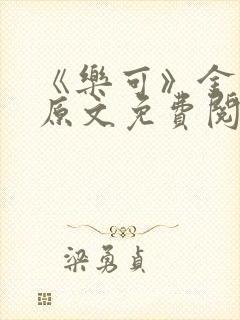 《樂可》全
原文免費閱
梁勇貞